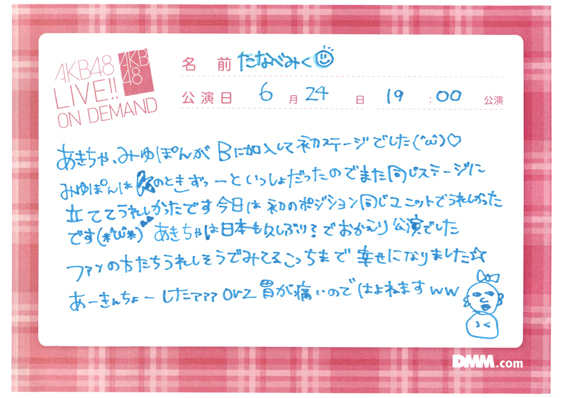 AKB48
LIVE!!
ON DEMAND
AKB
48
名 前 たなべみく
公演日 6 月 24 日 19 : 00 公演
あきちゃ、みゆぽんが Bに加入して初ステージでした(˙ω˙)♡
みゆぽんは のときずっーといっしょだったのでまた同じステージに
立ててうれしかったです 今日は初のポジション同じユニットでうれしかった
です(*˙ω˙*) あきちゃは日本も久しぶり?でおかえり公演でした
ファンの方たちうれしそうでみてるこっちまで幸せになりました☆
あーきんちょーしたァァァ orz 胃が痛いのではよねますww
DMM.com